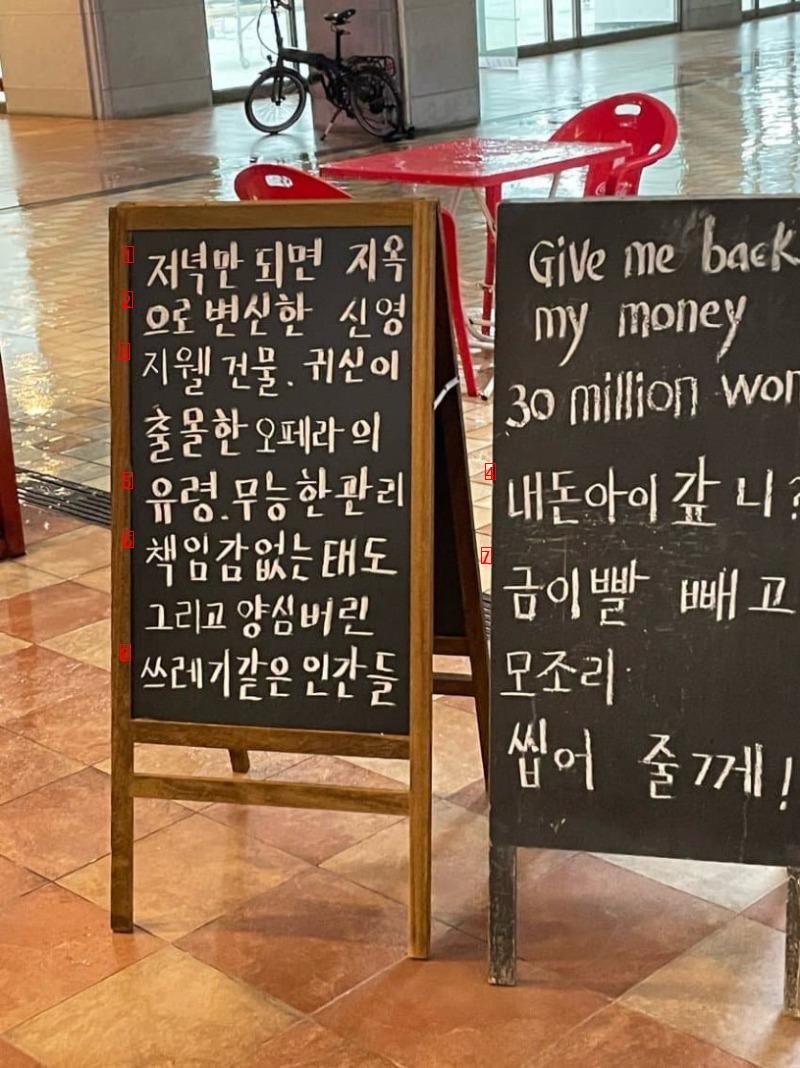 저녁만 되면 지옥
으로 변신한 신영
지웰 건물. 귀신이
출몰한 오페라의
유령. 무능한 관리
책임감없는 태도
그리고 양심버린
쓰레기같은 인간들
Give me back
my money
30 million won
내돈아이갚니?
금이빨 빼고
모조리
씹어 줄께!